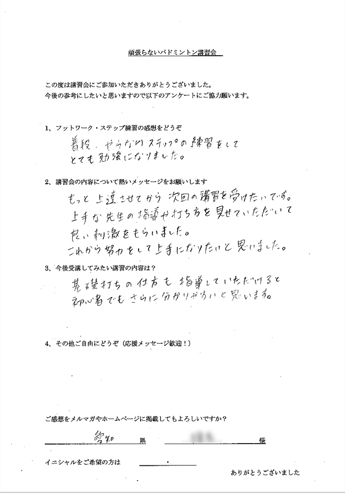 頑張らないバドミントン講習会
この度は講習会にご参加いただきありがとうございました。
今後の参考にしたいと思いますので以下のアンケートにご協力願います。
1、フットワーク・ステップ練習の感想をどうぞ
普段、やらないステップの練習をして
とても勉強になりました。
2、講習会の内容について熱いメッセージをお願いします
もっと上達させてから次回の講習を受けたいです。
上手な先生の指導や打ち方を見せていただいて
良い刺激をもらいました。
これから努力をして上手になりたいと思いました。
3、今後受講してみたい講習の内容は?
基礎打ちの仕方も指導していただけると
初心者でもさらに分かりやすいと思います。
4、その他ご自由にどうぞ(応援メッセージ歓迎!)
ご感想をメルマガやホームページに掲載してもよろしいですか?
愛知 県 様
イニシャルをご希望の方は ・
ありがとうございました